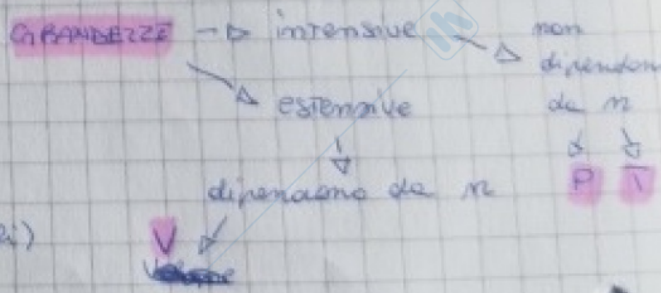 GRANDEZZE → intensive → non
dipendono
da n
P T
estensive
dipendono da n
V